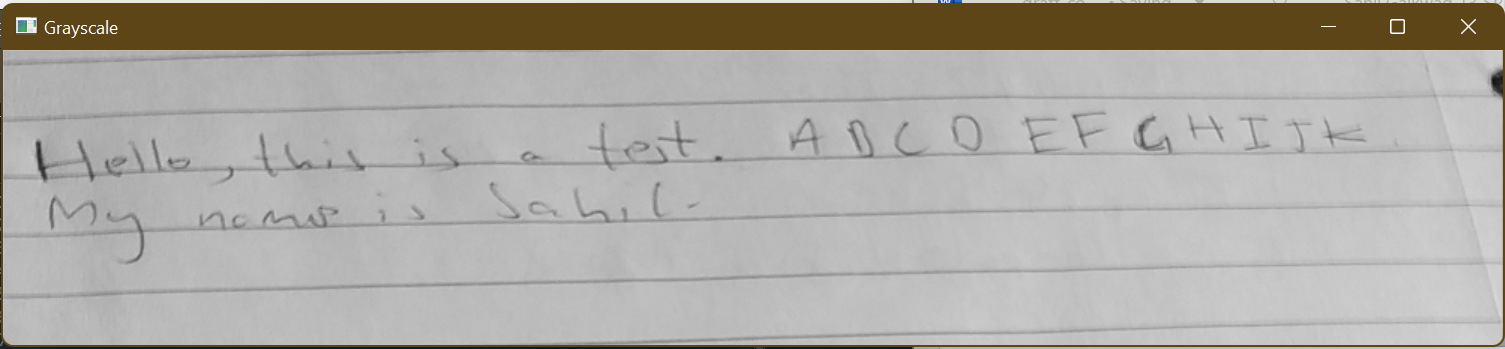 Grayscale
Hello, this is a test. A B C D E F G H I J K
My name is Sahil.